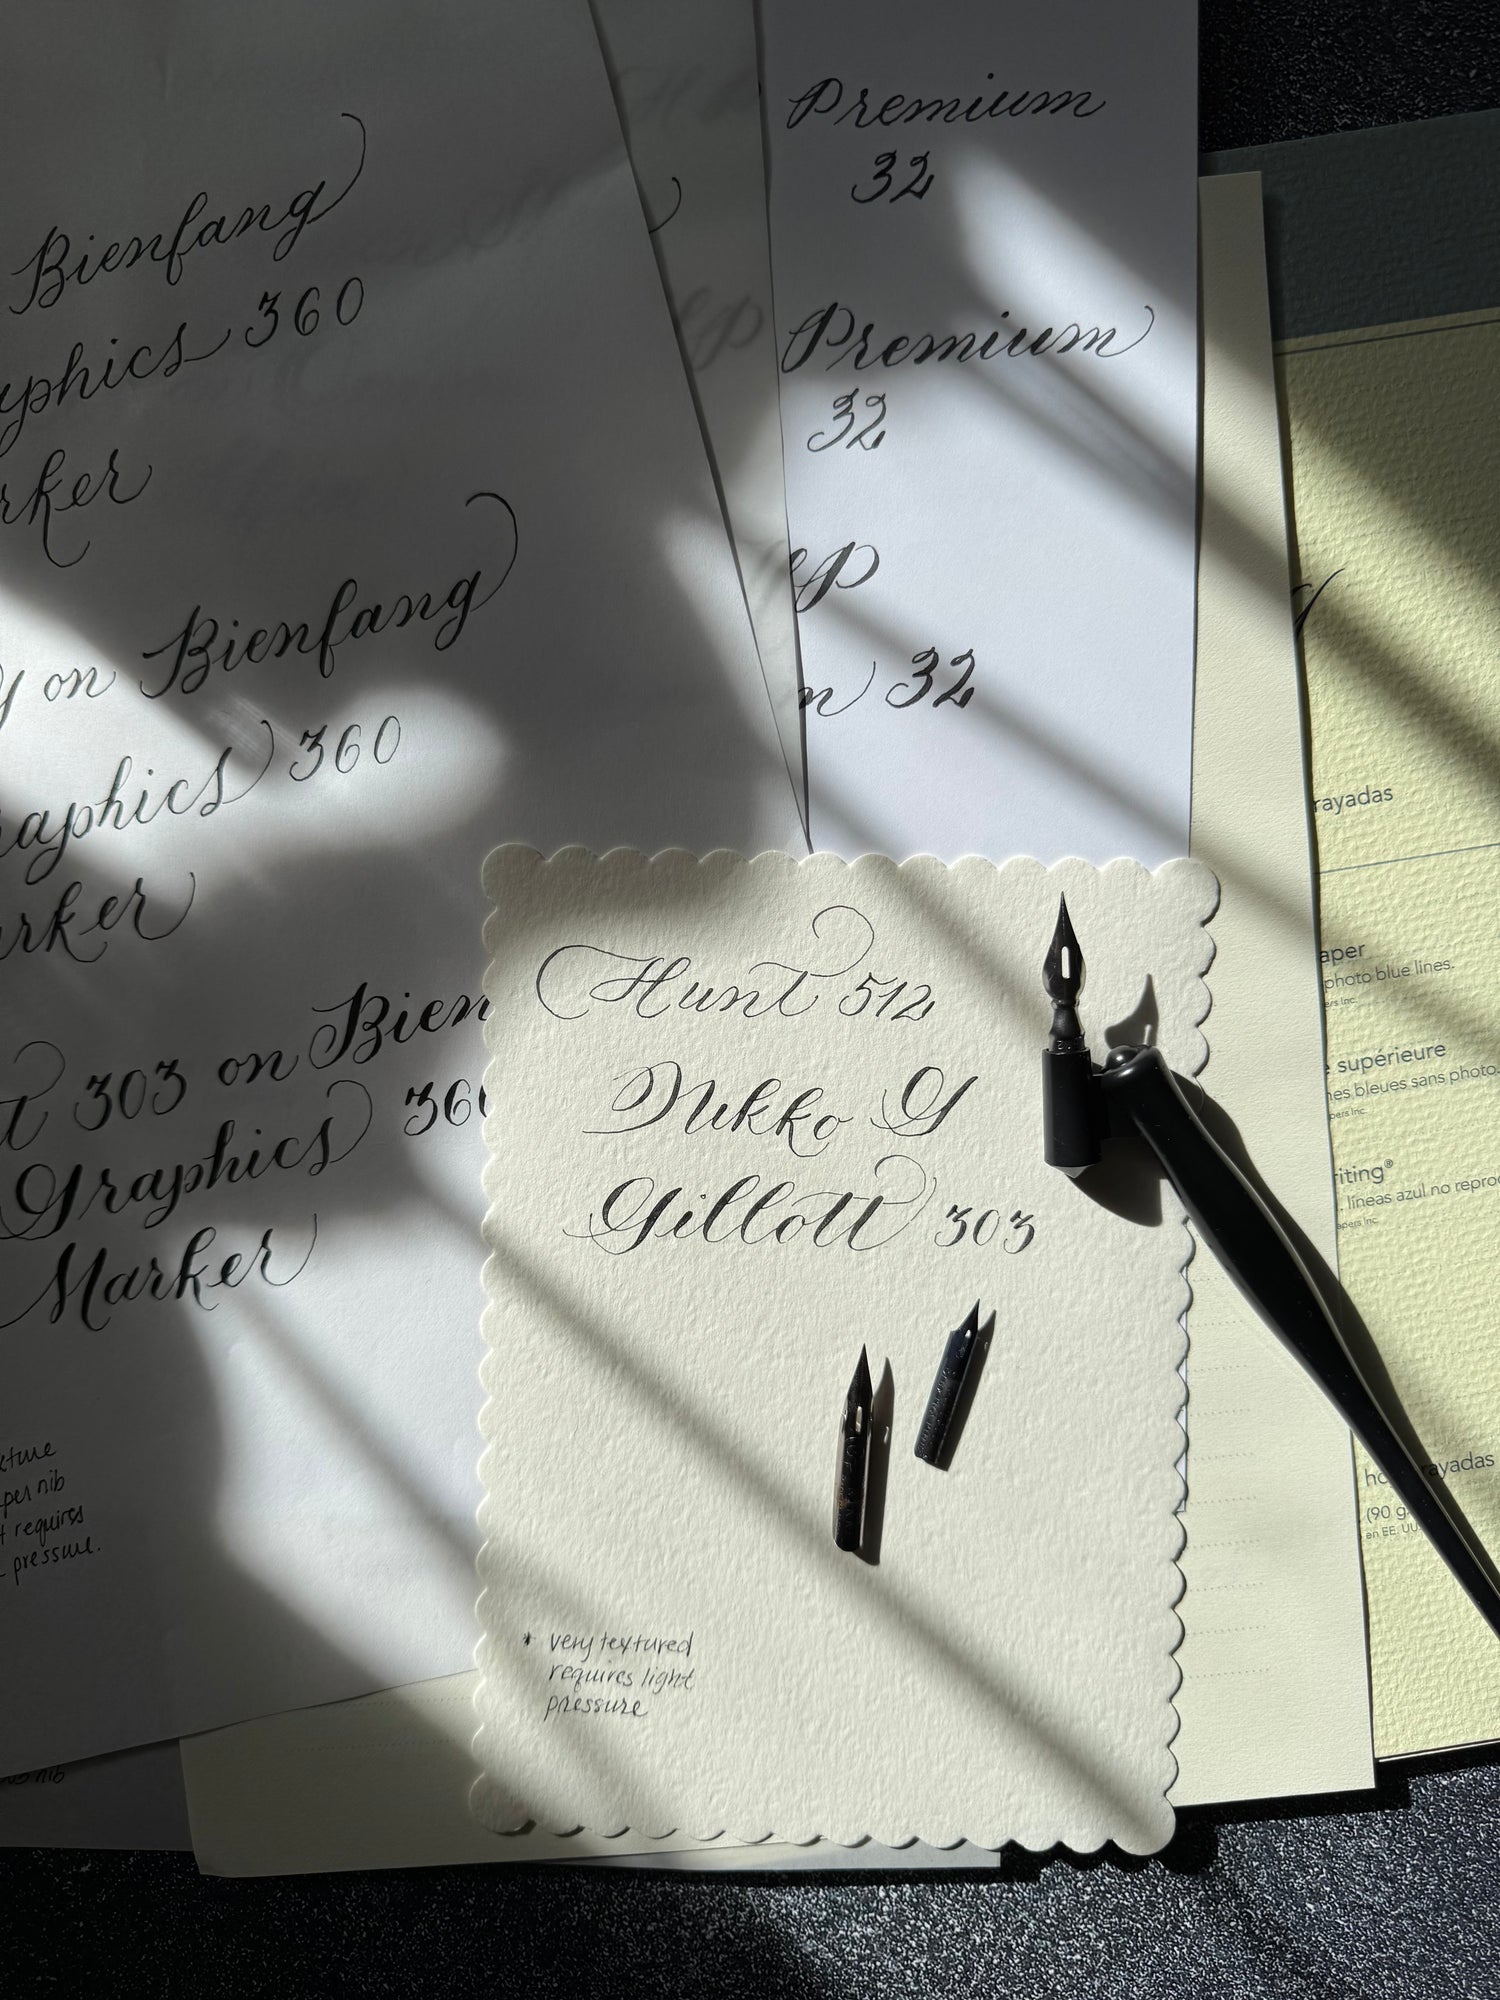 Bienfang
360
y on Bienfang
360
303 on Bien
Graphics 360
Marker
per nib
requires
pressure.
Premium
32
Premium
32
P
32
Hunt 512
Nikko G
Gillott 303
* very textured
requires light
pressure
nib
rayadas
aper
photo blue lines.
supérieure
nes bleues sans photo.
riting®
líneas azul no reproc
apers Inc.
rayadas
(90 g
en EE. UU.